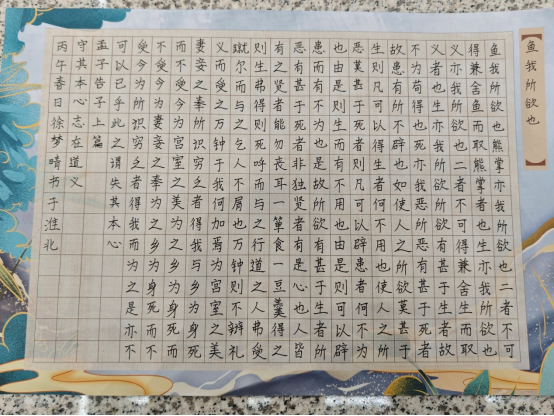 【鱼我所欲也】
鱼我所欲也熊掌亦我所欲也二者不可
得兼舍鱼而取熊掌者也生亦我所欲也
义亦我所欲也二者不可得兼舍生而取
义者也生亦我所欲所欲有甚于生者故
不为苟得也死亦我恶所恶有甚于死者
故患有所不辟也如使人之所欲莫甚于
生则凡可以得生者何不用也使人之所
恶莫甚于死者则凡可以辟患者何不为
也由是则生而有不用也由是则可以辟
患而有不为也是故所欲有甚于生者所
恶有甚于死者非独贤者有是心也人皆
有之贤者能勿丧耳一箪食一豆羹得之
则生弗得则死呼而与之行道之人弗受
蹴尔而与之乞人不屑也万钟则不辨礼
义而受之万钟于我何加焉为宫室之美
妻妾之奉所识穷乏者得我与乡为身死
而不受今为宫室之美为之乡为身死而
不受今为妻妾之奉为之乡为身死而不
受今为所识穷乏者得我而为之是亦不
可以已乎此之谓失其本心
孟子告子上篇
守其本心志在道义
丙午春日徐梦晴书于淮北